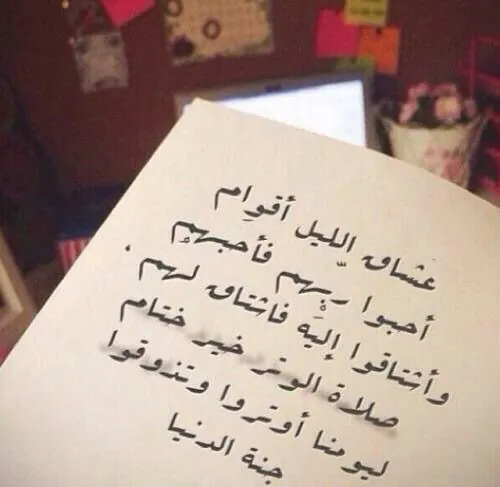 عشاق اللّيل أقوام
أحبوا ربهم فأحبهم
وأشتاقوا إليه فاشتاق لهم .
صلاة الوتر خير ختام
ليومنا أوتروا وتذوقوا
جنة الدنيا